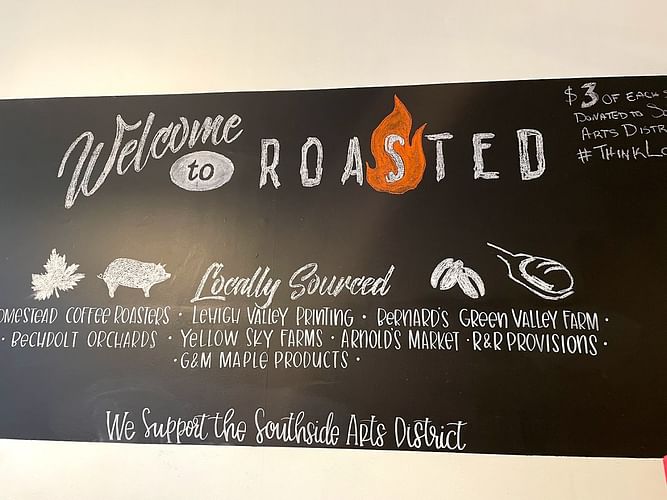 Welcome
to
ROASTED
$3 OF EACH
DONATED TO
ARTS
#THINK
Locally Sourced
COFFEE ROASTERS · LEHIGH VALLEY PRINTING · BERNARD'S GREEN VALLEY FARM ·
· BECHDOLT ORCHARDS · YELLOW SKY FARMS · ARNOLD'S MARKET · R&R PROVISIONS ·
· G&M MAPLE PRODUCTS ·
We Support the Southside Arts District